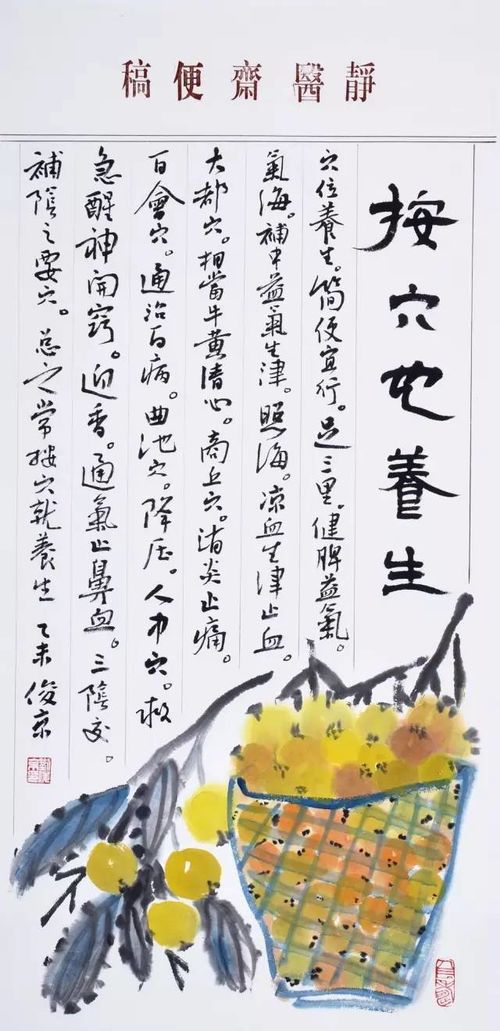 靜醫齋便稿
按穴也養生
穴位養生。簡便宜行。足三里。健脾益氣。
氣海。補中益氣生津。照海。凉血生津止血。
大都穴。相當牛黄清心。商丘穴。消炎止痛。
百會穴。通治百病。曲池穴。降压。人中穴。救
急醒神開竅。迎香。通氣止鼻血。三陰交。
補陰之要穴。总之常按穴就養生 乙未 俊京